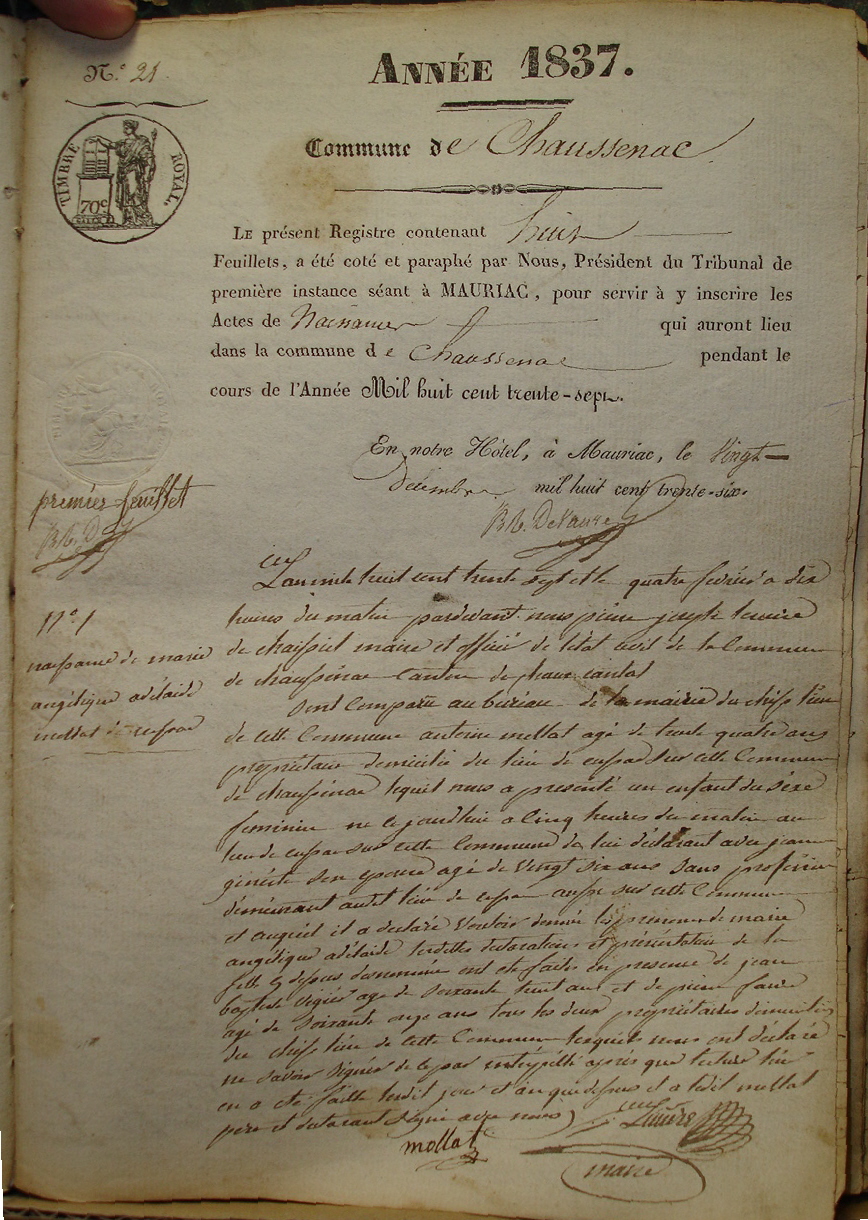 N.° 21
ANNÉE 1837.
TIMBRE ROYAL.
70c
Commune de Chaussenac
LE présent Registre contenant huit
Feuillets, a été coté et paraphé par Nous, Président du Tribunal de
première instance séant à MAURIAC, pour servir à y inscrire les
Actes de Naissances qui auront lieu
dans la commune de Chaussenac pendant le
cours de l'Année Mil huit cent trente-sept.
En notre Hôtel, à Mauriac, le vingt
décembre mil huit cent trente-six.
premier feuillet
N° 1
naissance de marie
angélique adélaïde
mollat de
L'an mile huit cent trente sept et le quatre février a dix
heures du matin pardevant nous pierre
de maire et officié de l'état civil de la Commune
de chaussenac Canton de cantal
sont Comparu au bureau de la mairie du chef lieu
de cette Commune antoine mollat agé de trente quatre ans
propriétaire domicilié du lieu de sur cette Commune
de chaussenac lequel nous a presenté un enfant du séxe
feminin né ce jourdhui a Cinq heures du matin au
lieu de sur cette Commune de lui déclarant avec jeanne
son epouse agé de Vingt six ans sans profession
demeurant audit lieu de aussi sur cette Commune
et auquel il a declaré Vouloir donner les prenoms de marie
angélique adélaïde lesdittes declaration et présentation de la
fille ci dessus denommée ont été faites en presence de jean
baptiste agé de Soixante huit ans et de pierre faure
agé de Soixante onze ans tous les deux propriétaires domiciliés
du chef lieu de cette Commune lesquels nous ont déclaré
ne savoir Signer de ce par interpéllé après que lecture leur
en a été faitte ledit jour et an que dessus et a ledit mollat
pere et declarant Signé avec nous
mollat
maire